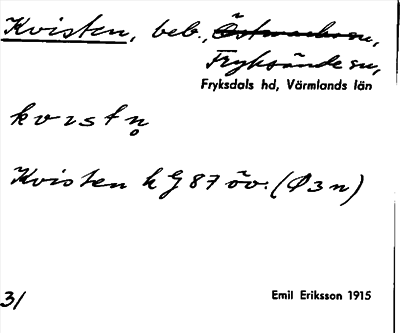 Kvisten, beb., Östmarks sn,
Fryksände sn,
Fryksdals hd, Värmlands län
kvɪstn̥
Kvisten h G 87 öv. (Ø 3 n)
3/
Emil Eriksson 1915